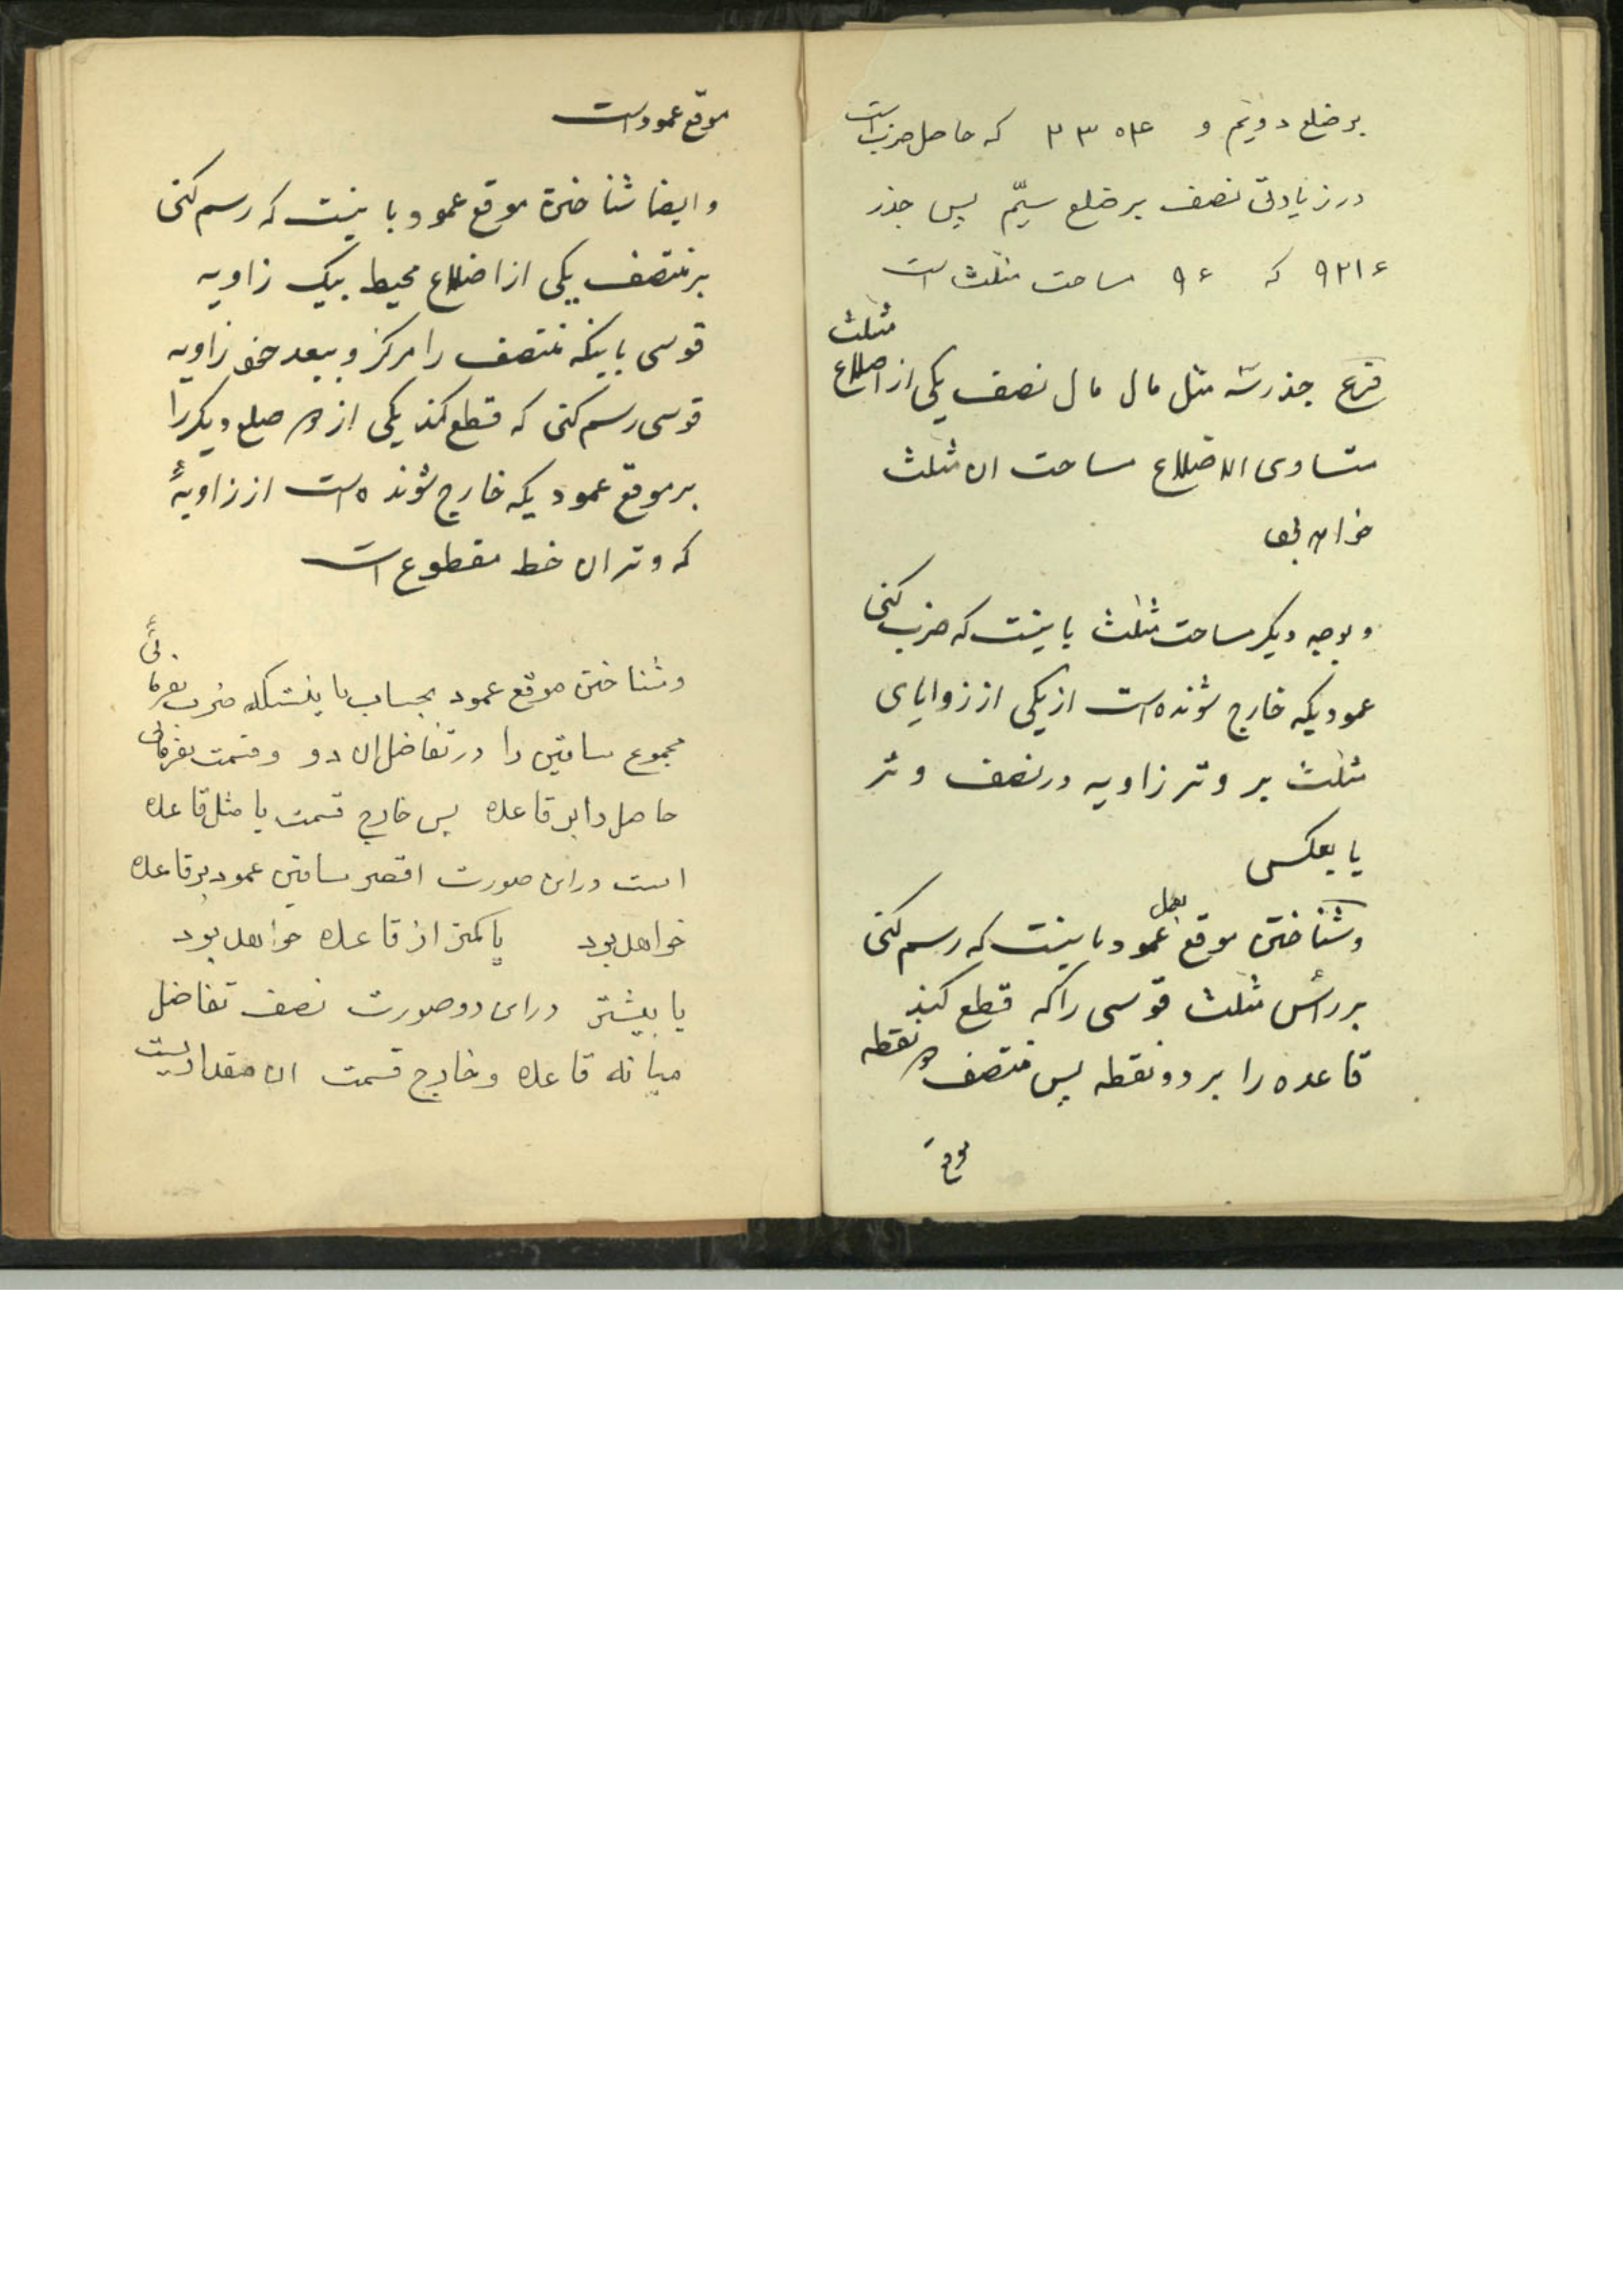 بر ضلع دویّم و ۲۳۰۴ که حاصل ضرب است
در زیادتی نصف بر ضلع سیّم پس جذر
۹۲۱۶ که ۹۶ مساحت مثلث است
فرع جذر سه مثل مال مال نصف یکی از اضلاع مثلث
متساوی الاضلاع مساحت ان مثلث
خواهد بود
و بوجه دیگر مساحت مثلث باینست که ضرب کنی
عمودیکه خارج شونده است از یکی از زوایای
مثلث بر وتر زاویه در نصف وتر
یا بعکس
و شناختن موقع عمود بعمل باینست که رسم کنی
بر رأس مثلث قوسی را که قطع کند
قاعده را بر دو نقطه پس منتصف دو نقطه
موقع
موقع عمود است
و ایضا شناختن موقع عمود باینست که رسم کنی
بر منتصف یکی از اضلاع محیط بیک زاویه
قوسی باینکه منتصف را مرکز و ببعد زاویه
قوسی رسم کنی که قطع کند یکی از دو ضلع دیگر را
بر موقع عمودیکه خارج شونده است از زاویهٔ
که وتر ان خط مقطوع است
و شناختن موقع عمود بحساب باینستکه ضرب بفرمائی
مجموع ساقین را در تفاضل ان دو و قسمت بفرمائی
حاصل را بر قاعده پس خارج قسمت یا مثل قاعده
است در این صورت اقصر ساقین عمود بر قاعده
خواهد بود یا کمتر از قاعده خواهد بود
یا بیشتر در این دو صورت نصف تفاضل
میانه قاعده و خارج قسمت ان مقداریست